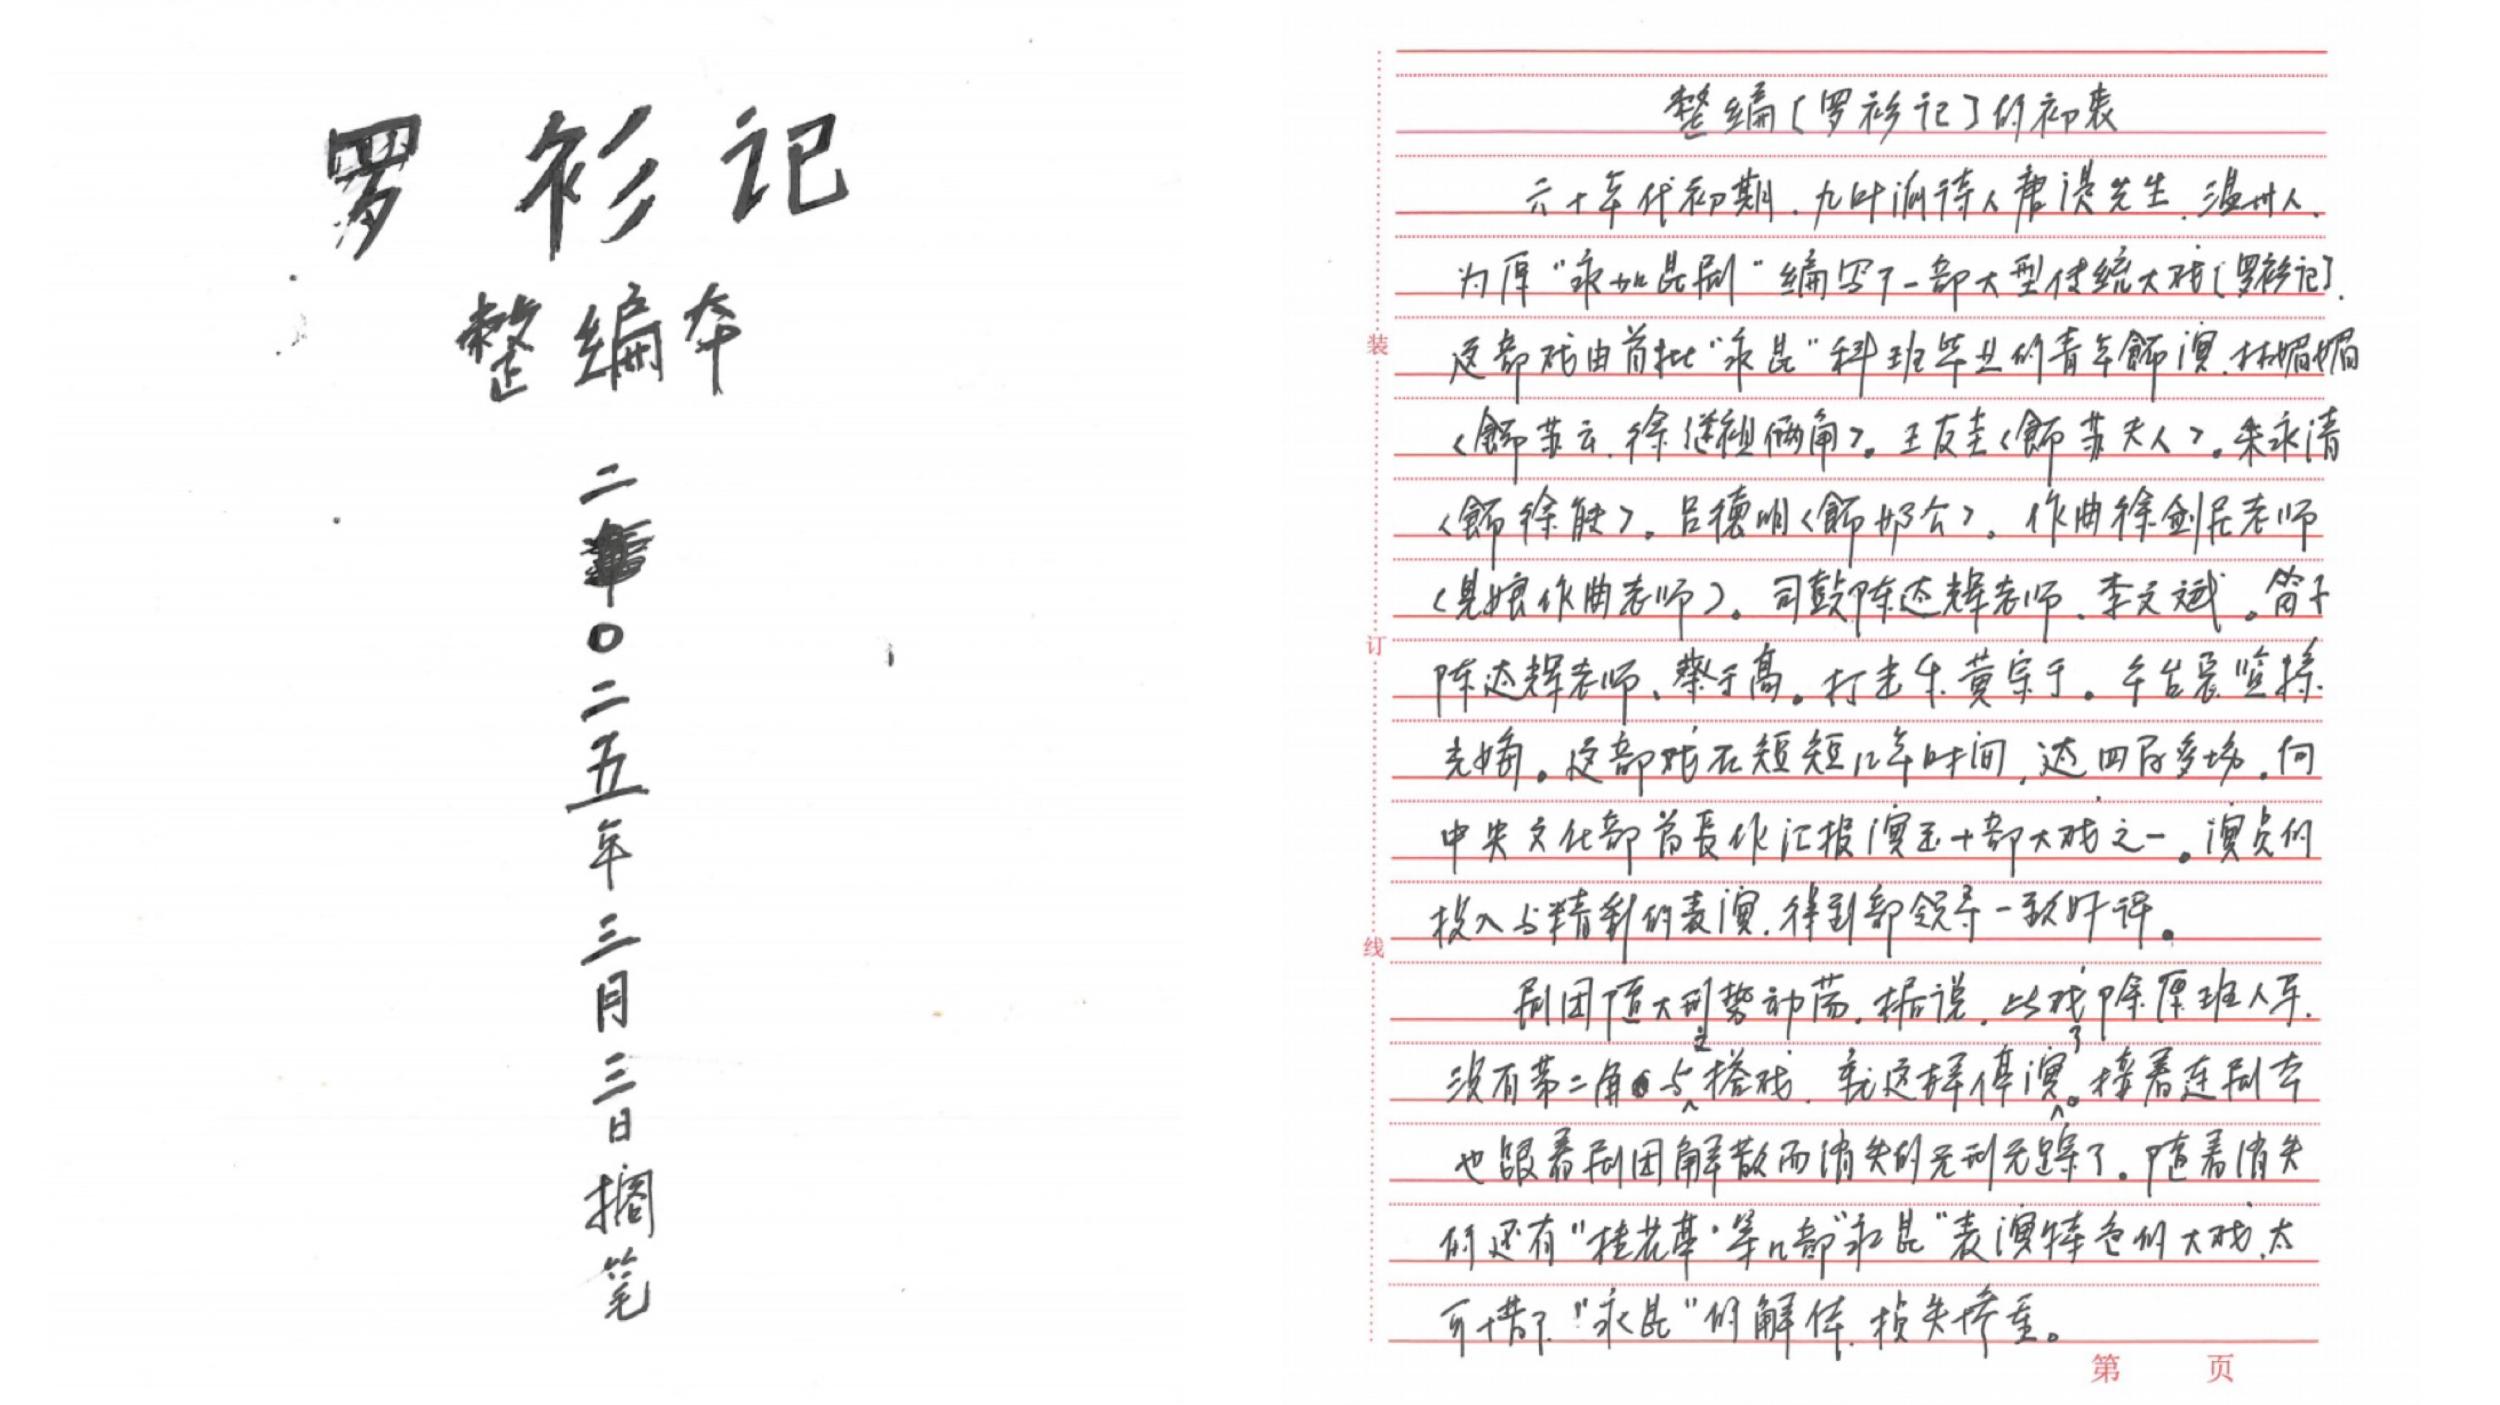 罗衫记
整编本
二〇二五年三月三日搁笔
整编〔罗衫记〕的初衷
六十年代初期、九叶派诗人唐湜先生、温州人、
为原“永加昆剧”编写了一部大型传统大戏〔罗衫记〕、
这部戏由首批“永昆”科班毕业的青年饰演、林媚媚
〈饰苏云、徐继祖俩角〉。王友圭〈饰苏夫人〉。朱永清
〈饰徐能〉。吕德明〈饰奶公〉。作曲徐剑民老师
（见娘作曲老师）。司鼓陈达辉老师、李文斌。笛子
陈达辉老师、蔡于高。打击乐黄宗于。午台
这部戏在短短几年时间、达四百多场、向
中央文化部首长作汇报演出十部大戏之一。演员的
投入与精彩的表演、得到部领导一致好评。
剧团随大形势动荡、据说、此戏除原班人马、
没有第二角与之搭戏、就这样停演了。接着连剧本
也跟着剧团解散而消失的无形无踪了。随着消失
的还有“桂花亭”等几部“永昆”表演特色的大戏、太
可惜了“永昆”的解体、损失惨重。
装
订
线
第 页